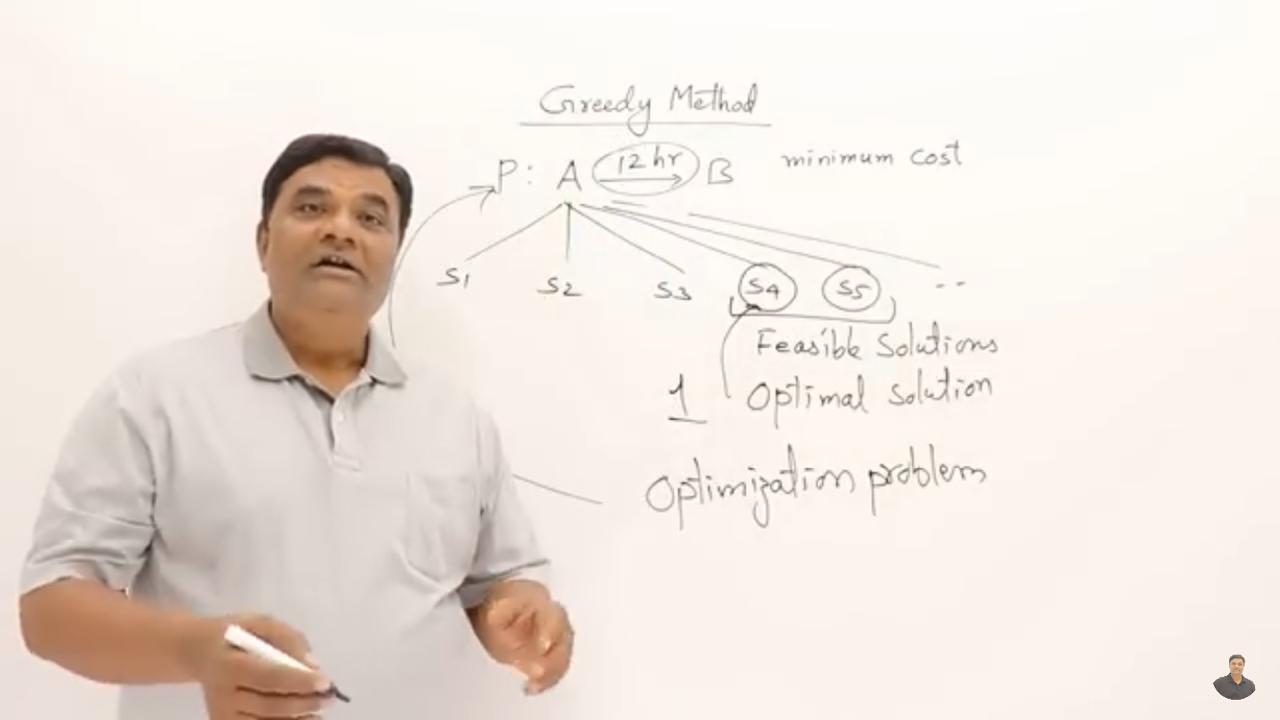 Greedy Method
P: A 12 hr B minimum cost
S1 S2 S3 S4 S5 --
Feasible Solutions
1 Optimal solution
Optimization problem